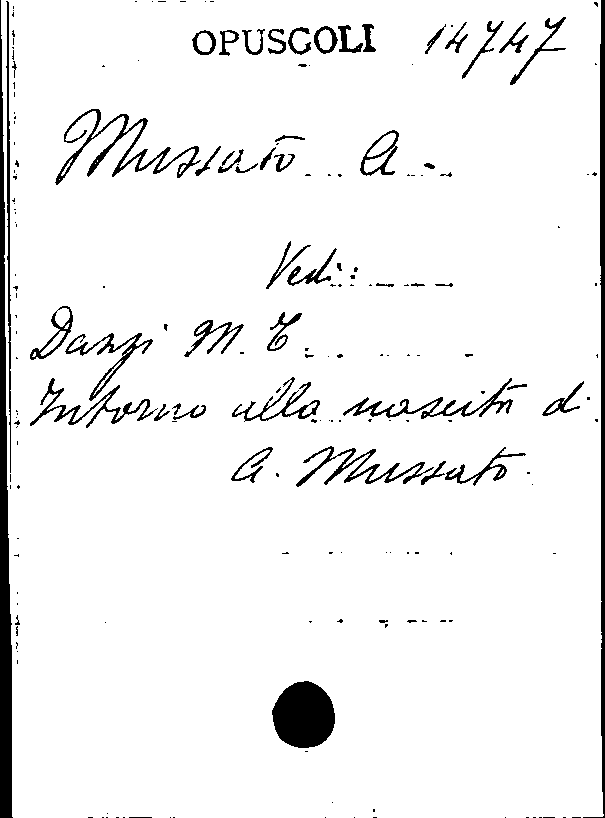 OPUSCOLI 14747
Mussato A.
Vedi:
Danzi M. T.
Intorno alla nascita di
A. Mussato.